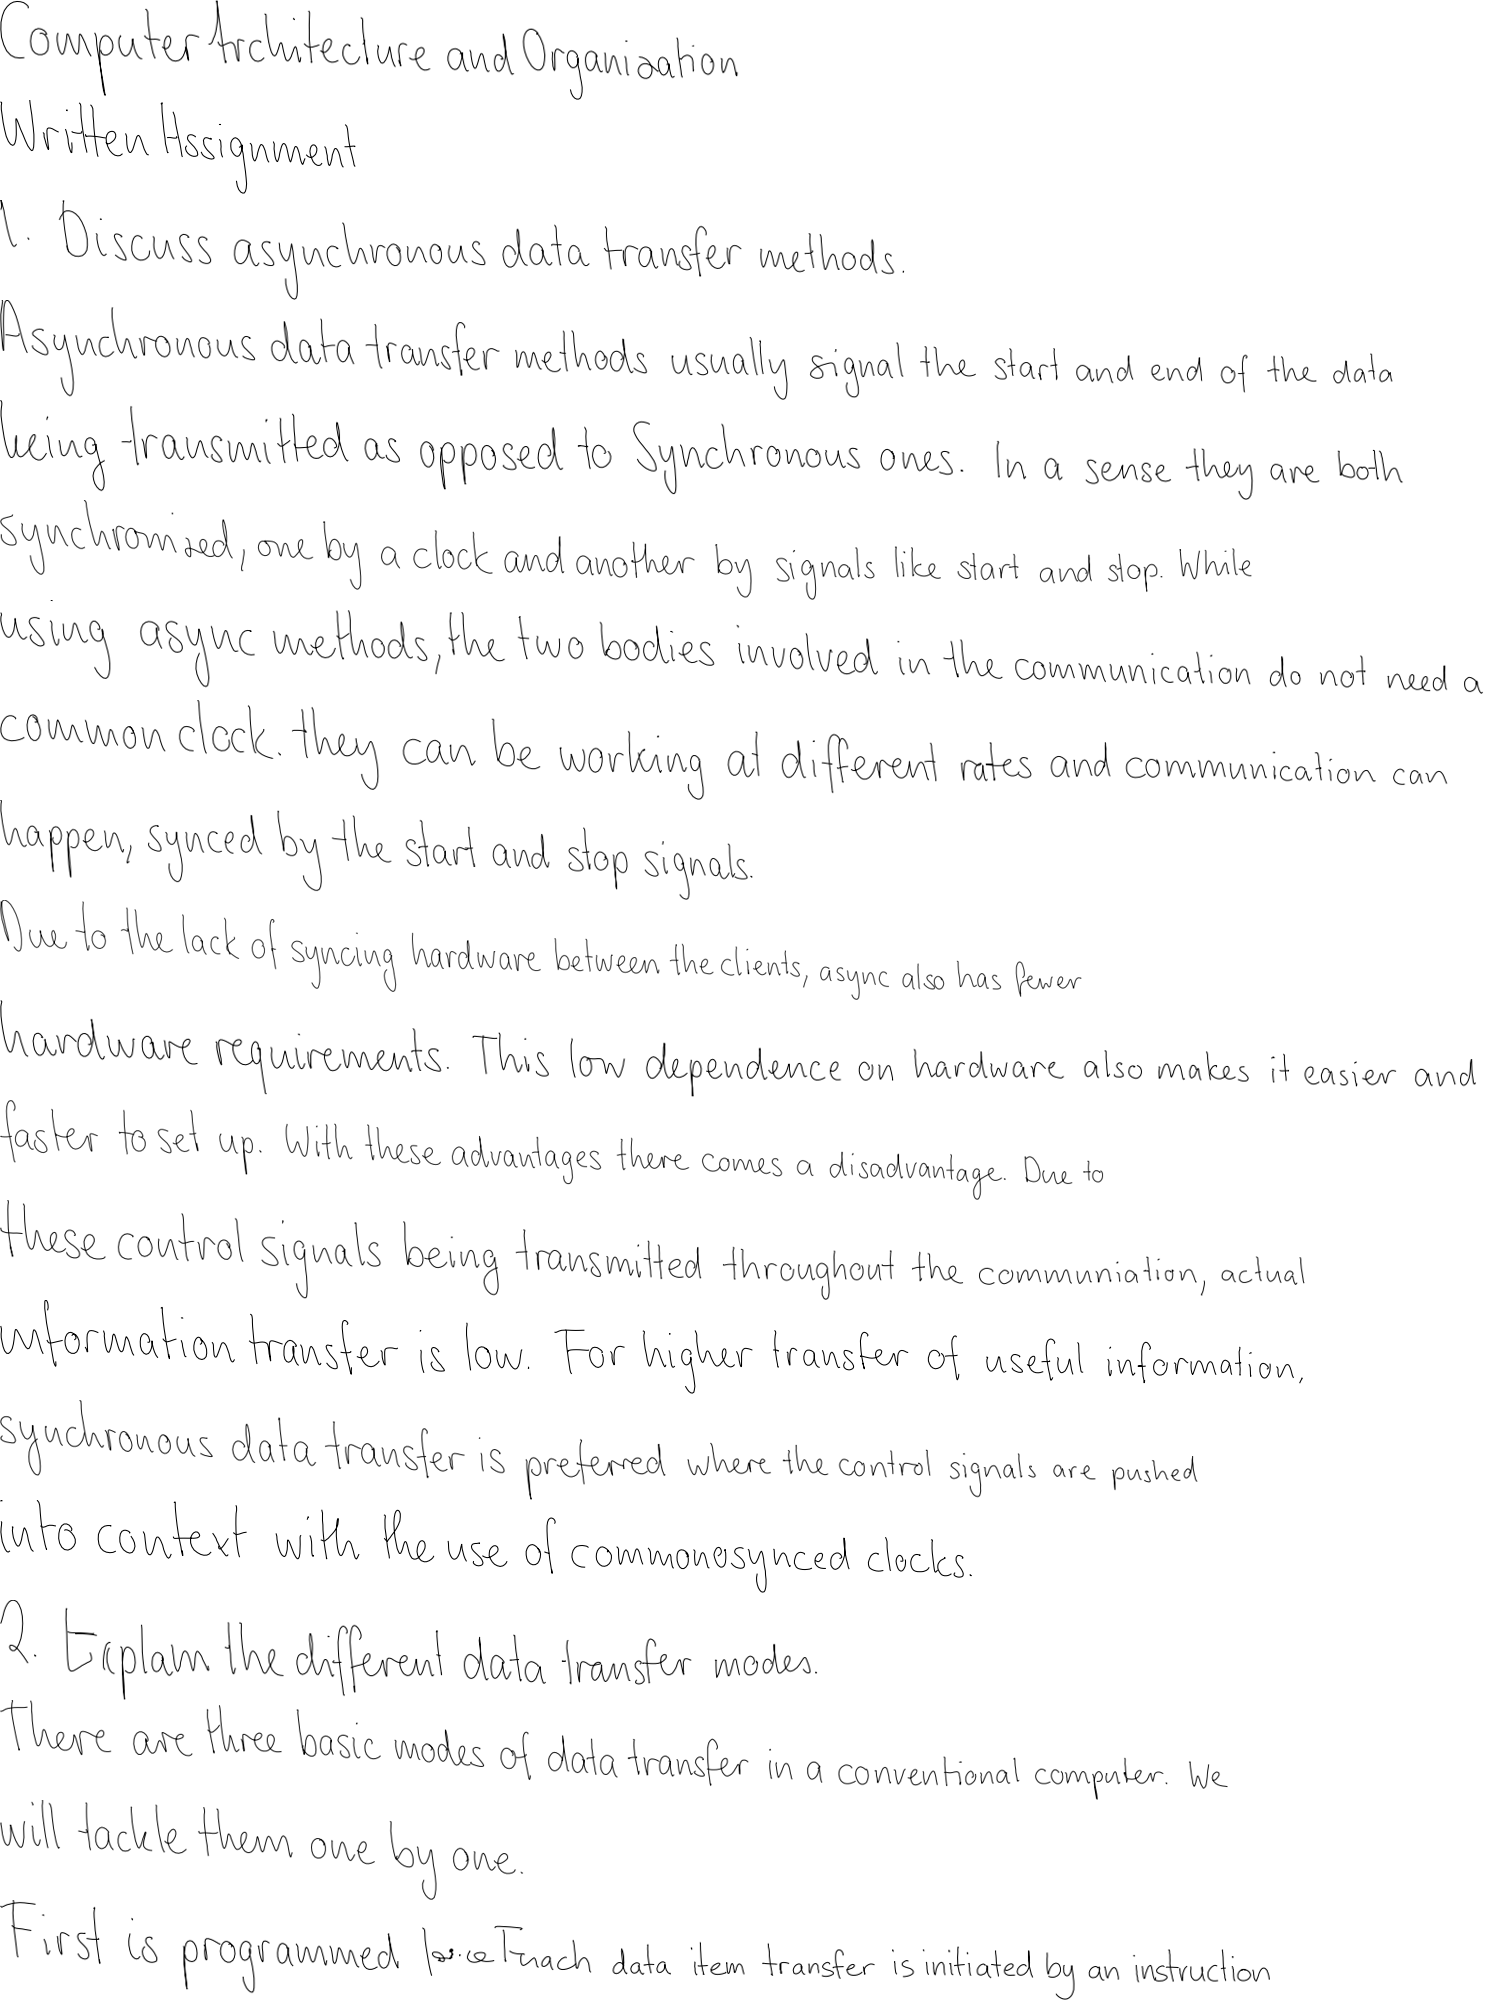 Computer Architecture and Organization
Written Assignment
1. Discuss asynchronous data transfer methods.
Asynchronous data transfer methods usually signal the start and end of the data
being transmitted as opposed to Synchronous ones. In a sense they are both
synchronized, one by a clock and another by signals like start and stop. While
using async methods, the two bodies involved in the communication do not need a
common clock. they can be working at different rates and communication can
happen, synced by the start and stop signals.
Due to the lack of syncing hardware between the clients, async also has fewer
hardware requirements. This low dependence on hardware also makes it easier and
faster to set up. With these advantages there comes a disadvantage. Due to
these control signals being transmitted throughout the communiation, actual
information transfer is low. For higher transfer of useful information,
synchronous data transfer is preferred where the control signals are pushed
into context with the use of clocks.
2. Explain the different data transfer modes.
There are three basic modes of data transfer in a conventional computer. We
will tackle them one by one.
First is programmed data item transfer is initiated by an instruction